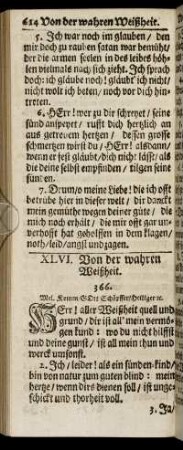 614 Von der wahren Weißheit.
5. Ich war noch im glauben / den
mir doch zu rauben satan war bemüh/
der die armen seelen in des leibes höh-
len vielmals nach sich zieht. Ich sprach
doch: ich glaube noch! glaubt ich nicht/
nicht wolt ich beten / noch vor dich hin-
treten.
6. HErr! wer zu dir schreyet / seine
sünd anspeyet / rufft dich hertzlich an
aus getreuem hertzen / dessen grosse
schmertzen wirst du / HErr! alsdann/
wenn er fest gläubt / dich nicht läßt: als
die deine selbst empfinden / tilgen seine
sünden.
7. Drum/o meine Liebe! die ich offt
betrübe hier in dieser welt / dir danckt
mein gemüthe wegen deiner güte / die
mich noch erhält / die mir offt gar un-
verhofft hat geholffen in dem klagen/
noth/leid/angst und zagen.
XLVI. Von der wahren
Weißheit.
366.
Mel. Komm GOtt Schöpffer/Heiliger ec.
HErr! aller Weißheit quell und
grund / dir ist all' mein vermö-
gen kund: wo du nicht hilffst
und deine gunst / ist all mein thun und
werck umsonst.
2. Ich / leider! als ein sünden-kind/
bin von natur zum guten blind: mein
hertze / wenn dirs dienen soll / ist unge-
schickt und thorheit voll.
3. Ja/